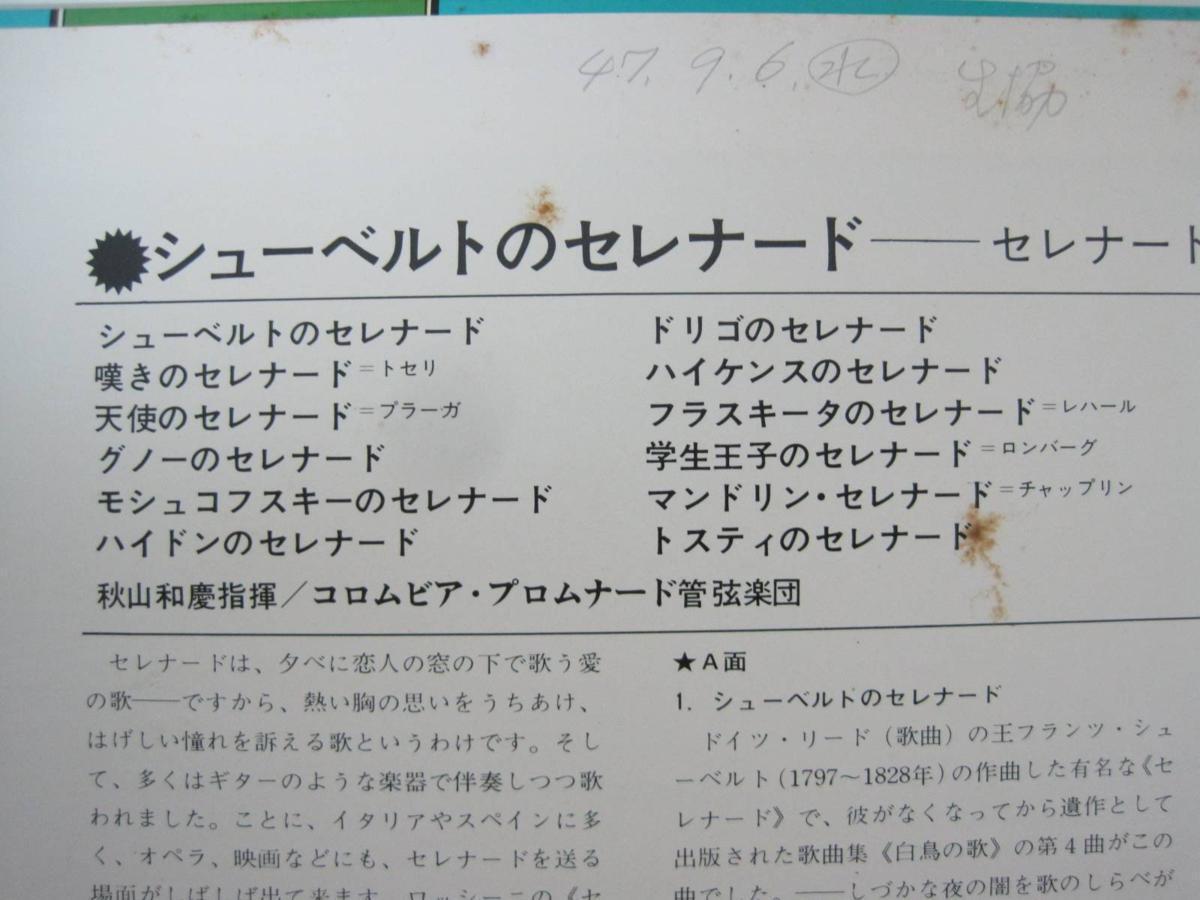 47. 9. 6. ㊌ 生協
シューベルトのセレナード——セレナード
シューベルトのセレナード
嘆きのセレナード=トセリ
天使のセレナード=ブラーガ
グノーのセレナード
モシュコフスキーのセレナード
ハイドンのセレナード
ドリゴのセレナード
ハイケンスのセレナード
フラスキータのセレナード=レハール
学生王子のセレナード=ロンバーグ
マンドリン・セレナード=チャップリン
トスティのセレナード
秋山和慶指揮/コロムビア・プロムナード管弦楽団
セレナードは、夕べに恋人の窓の下で歌う愛
の歌——ですから、熱い胸の思いをうちあけ、
はげしい憧れを訴える歌というわけです。そし
て、多くはギターのような楽器で伴奏しつつ歌
われました。ことに、イタリアやスペインに多
く、オペラ、映画などにも、セレナードを送る
場面がしばしば出て来ます。ロッシーニの《セ
★A面
1. シューベルトのセレナード
ドイツ・リード(歌曲)の王フランツ・シュ
ーベルト(1797〜1828年)の作曲した有名な《セ
レナード》で、彼がなくなってから遺作として
出版された歌曲集《白鳥の歌》の第4曲がこの
曲でした。——しづかな夜の闇を歌のしらべが